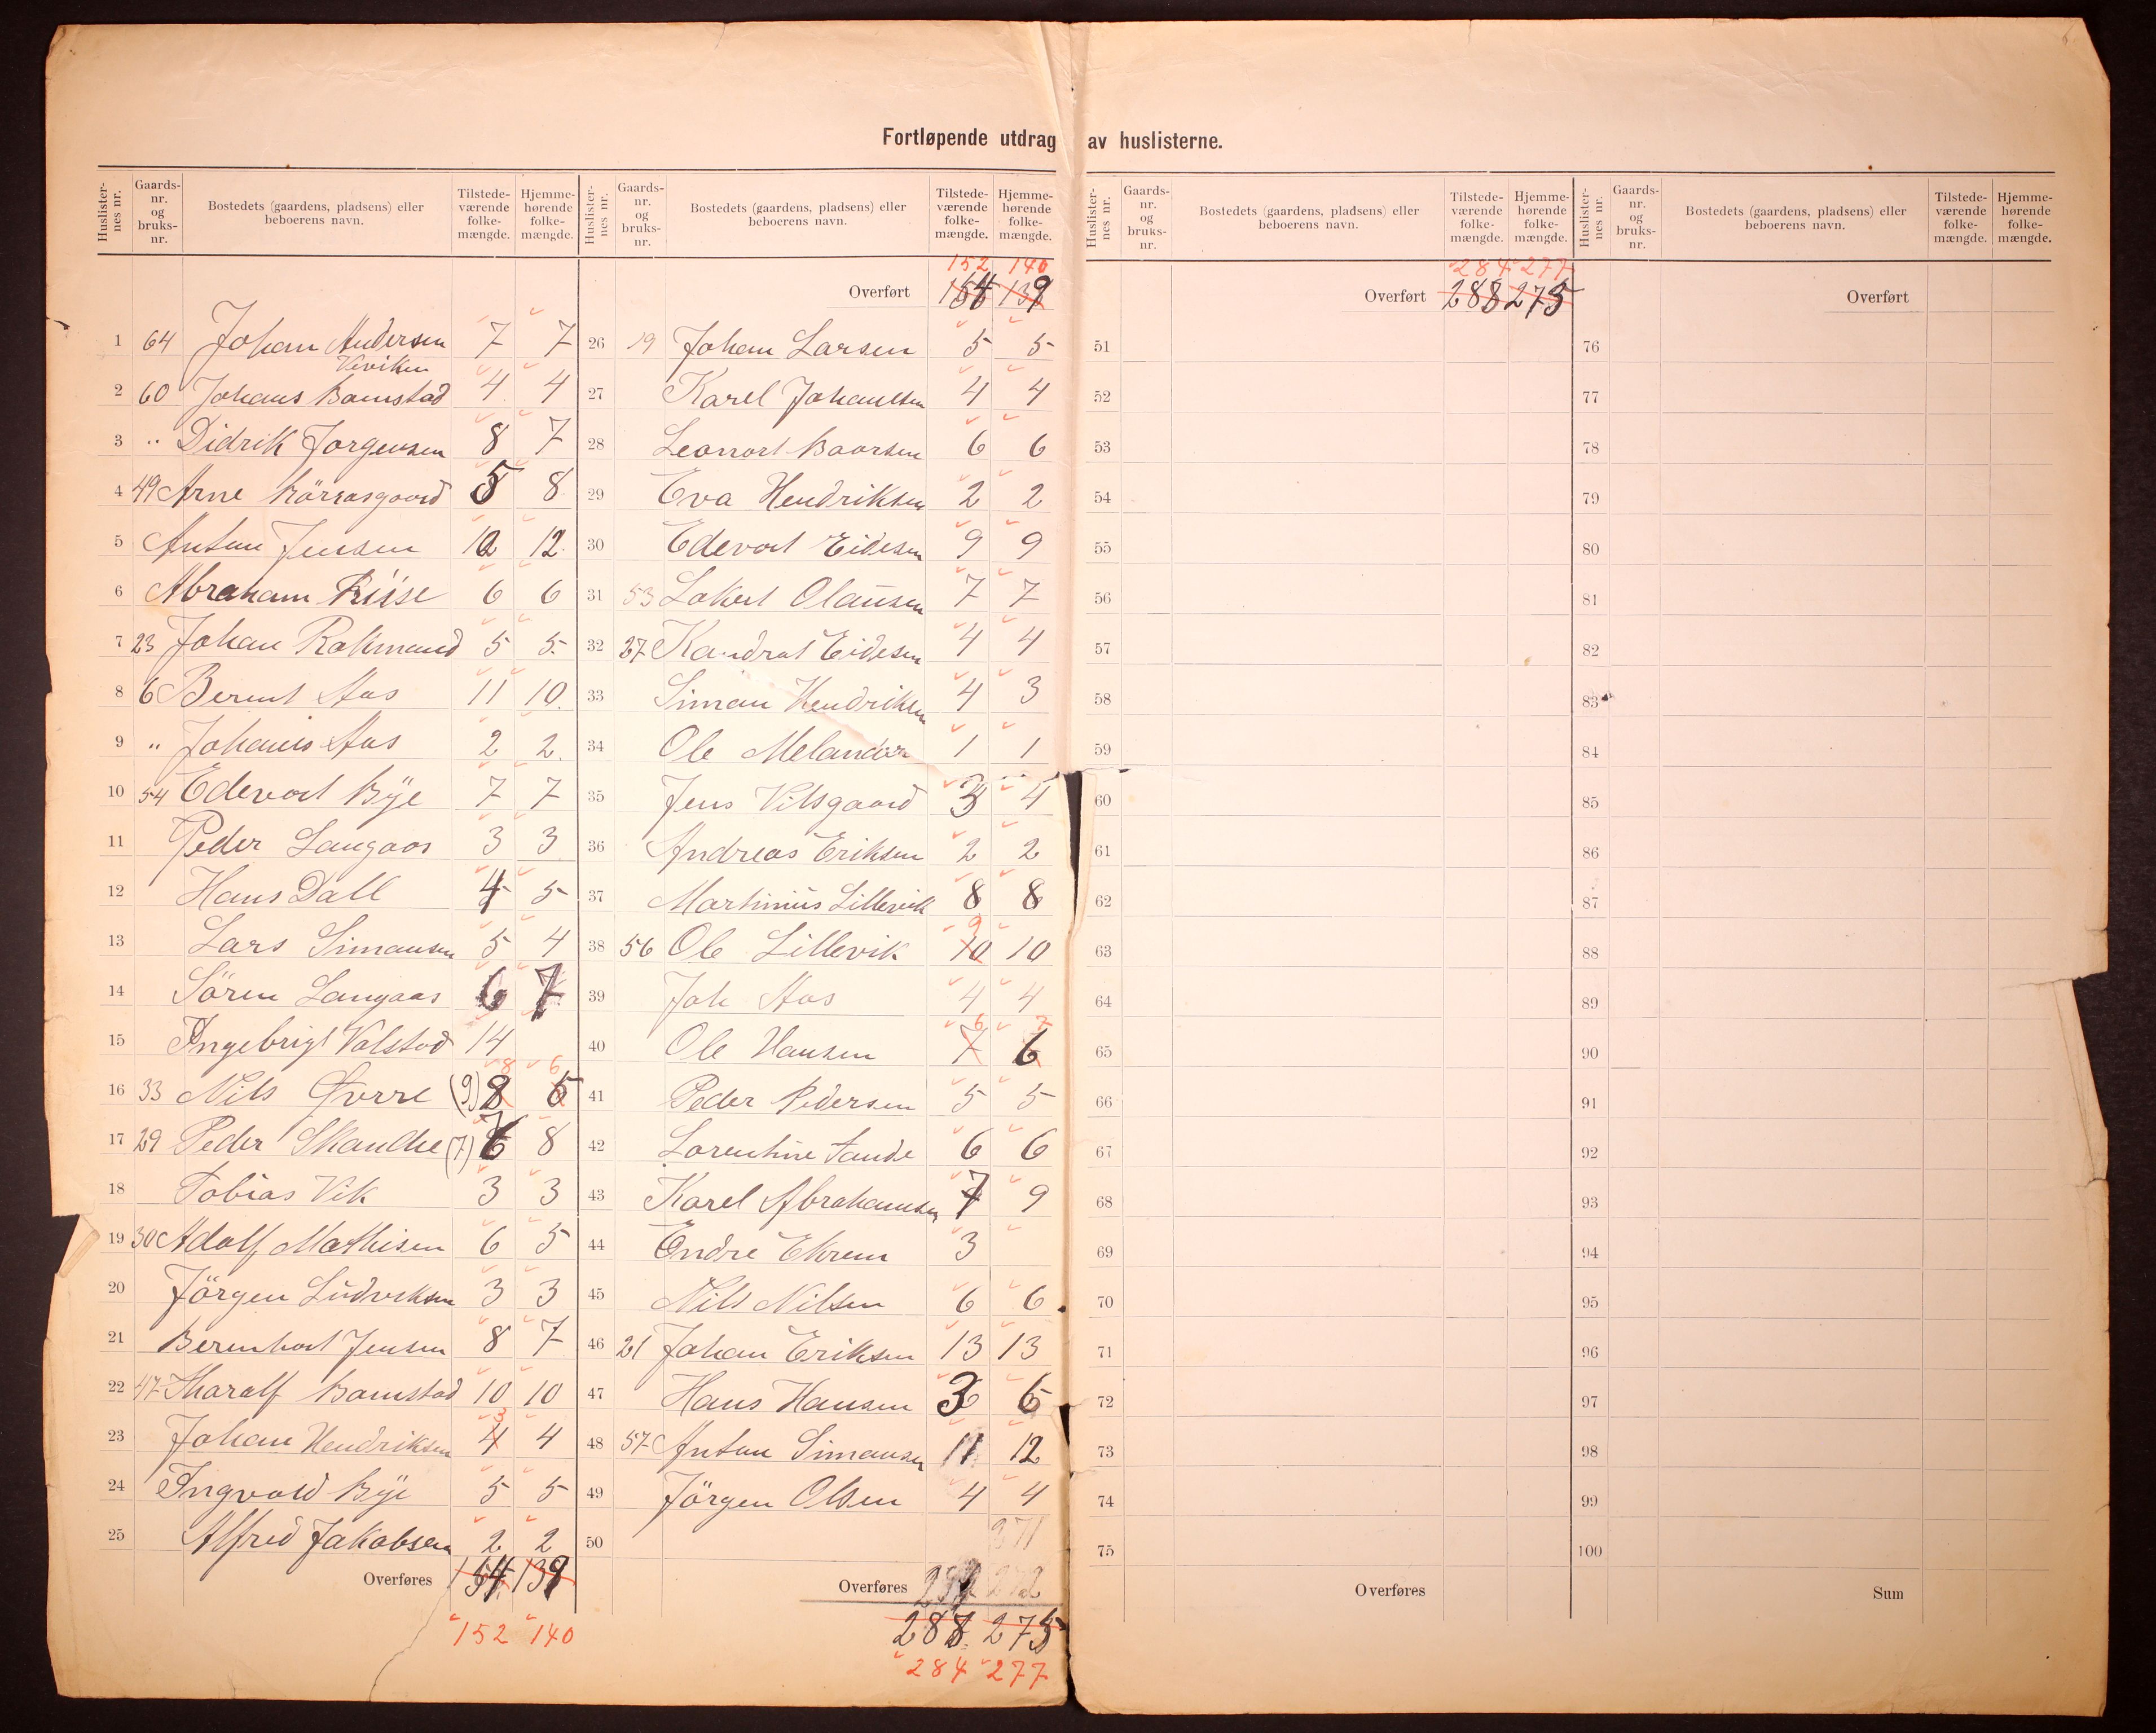 Fortløpende utdrag av huslisterne.
Huslisternes nr. Gaards-nr. og bruks-nr. Bostedets (gaardens, pladsens) eller beboerens navn. Tilstedeværende folkemængde. Hjemmehørende folkemængde.
1 64 Johan Andersen 7 7
Viviken
2 60 Johans Bomstad 4 4
3 " Didrik Jorgensen 8 7
4 49 Arne 5 8
5 Anton Jensen 10 12
6 Abraham Riise 6 6
7 23 Johan Rokmand 5 5
8 6 Berent Aas 11 10
9 " Johanis Aas 2 2
10 54 Edevart Bye 7 7
11 Peder Langaas 3 3
12 Hans Dall 4 5
13 Lars Simansen 5 4
14 Sören Langaas 6 7
15 Ingebrigt Valstad 14
16 33 Nils (9) 8 6
17 29 Peder Skancke (7) 6 8
18 Tobias Vik 3 3
19 30 Adolf Mathisen 6 5
20 Jörgen Ludviksen 3 3
21 Berenhart Jensen 8 7
22 47 Tharalf Bomstad 10 10
23 Johan Hendriksen 4 3 4
24 Ingvald Bye 5 5
25 Alfred Jakobsen 2 2
Overføres 154 139
152 140
Huslisternes nr. Gaards-nr. og bruks-nr. Bostedets (gaardens, pladsens) eller beboerens navn. Tilstedeværende folkemængde. Hjemmehørende folkemængde.
152 140
Overført 154 139
26 19 Johan Larsen 5 5
27 Karel Johansen 4 4
28 Leonart Baarsen 6 6
29 Eva Hendriksen 2 2
30 Edevart Eidesen 9 9
31 53 Lokert Olausen 7 7
32 27 Kandrat Eidesen 4 4
33 Siman Hendriksen 4 3
34 Ole Melander 1 1
35 Jens Vitsgaard 3 4
36 Andreas Eriksen 2 2
37 Martinius Lillevik 8 8
38 56 Ole Lillevik 10 9 10
39 Joh Aas 4 4
40 Ole Hansen 7 6 6 7
41 Peder Pedersen 5 5
42 Lorentine Sande 6 6
43 Karel Abrahamsen 7 9
44 Endre Ekrem 3
45 Nils Nilsen 6 6
46 21 Johan Eriksen 13 13
47 Hans Hansen 3 6
48 57 Anton Simansen 11 12
49 Jörgen Olsen 4 4
50 271
Overføres 272
288 275
284 277
Huslisternes nr. Gaards-nr. og bruks-nr. Bostedets (gaardens, pladsens) eller beboerens navn. Tilstedeværende folkemængde. Hjemmehørende folkemængde.
284 277
Overført 288 275
51
52
53
54
55
56
57
58
59
60
61
62
63
64
65
66
67
68
69
70
71
72
73
74
75
Overføres
Huslisternes nr. Gaards-nr. og bruks-nr. Bostedets (gaardens, pladsens) eller beboerens navn. Tilstedeværende folkemængde. Hjemmehørende folkemængde.
Overført
76
77
78
79
80
81
82
83
84
85
86
87
88
89
90
91
92
93
94
95
96
97
98
99
100
Sum